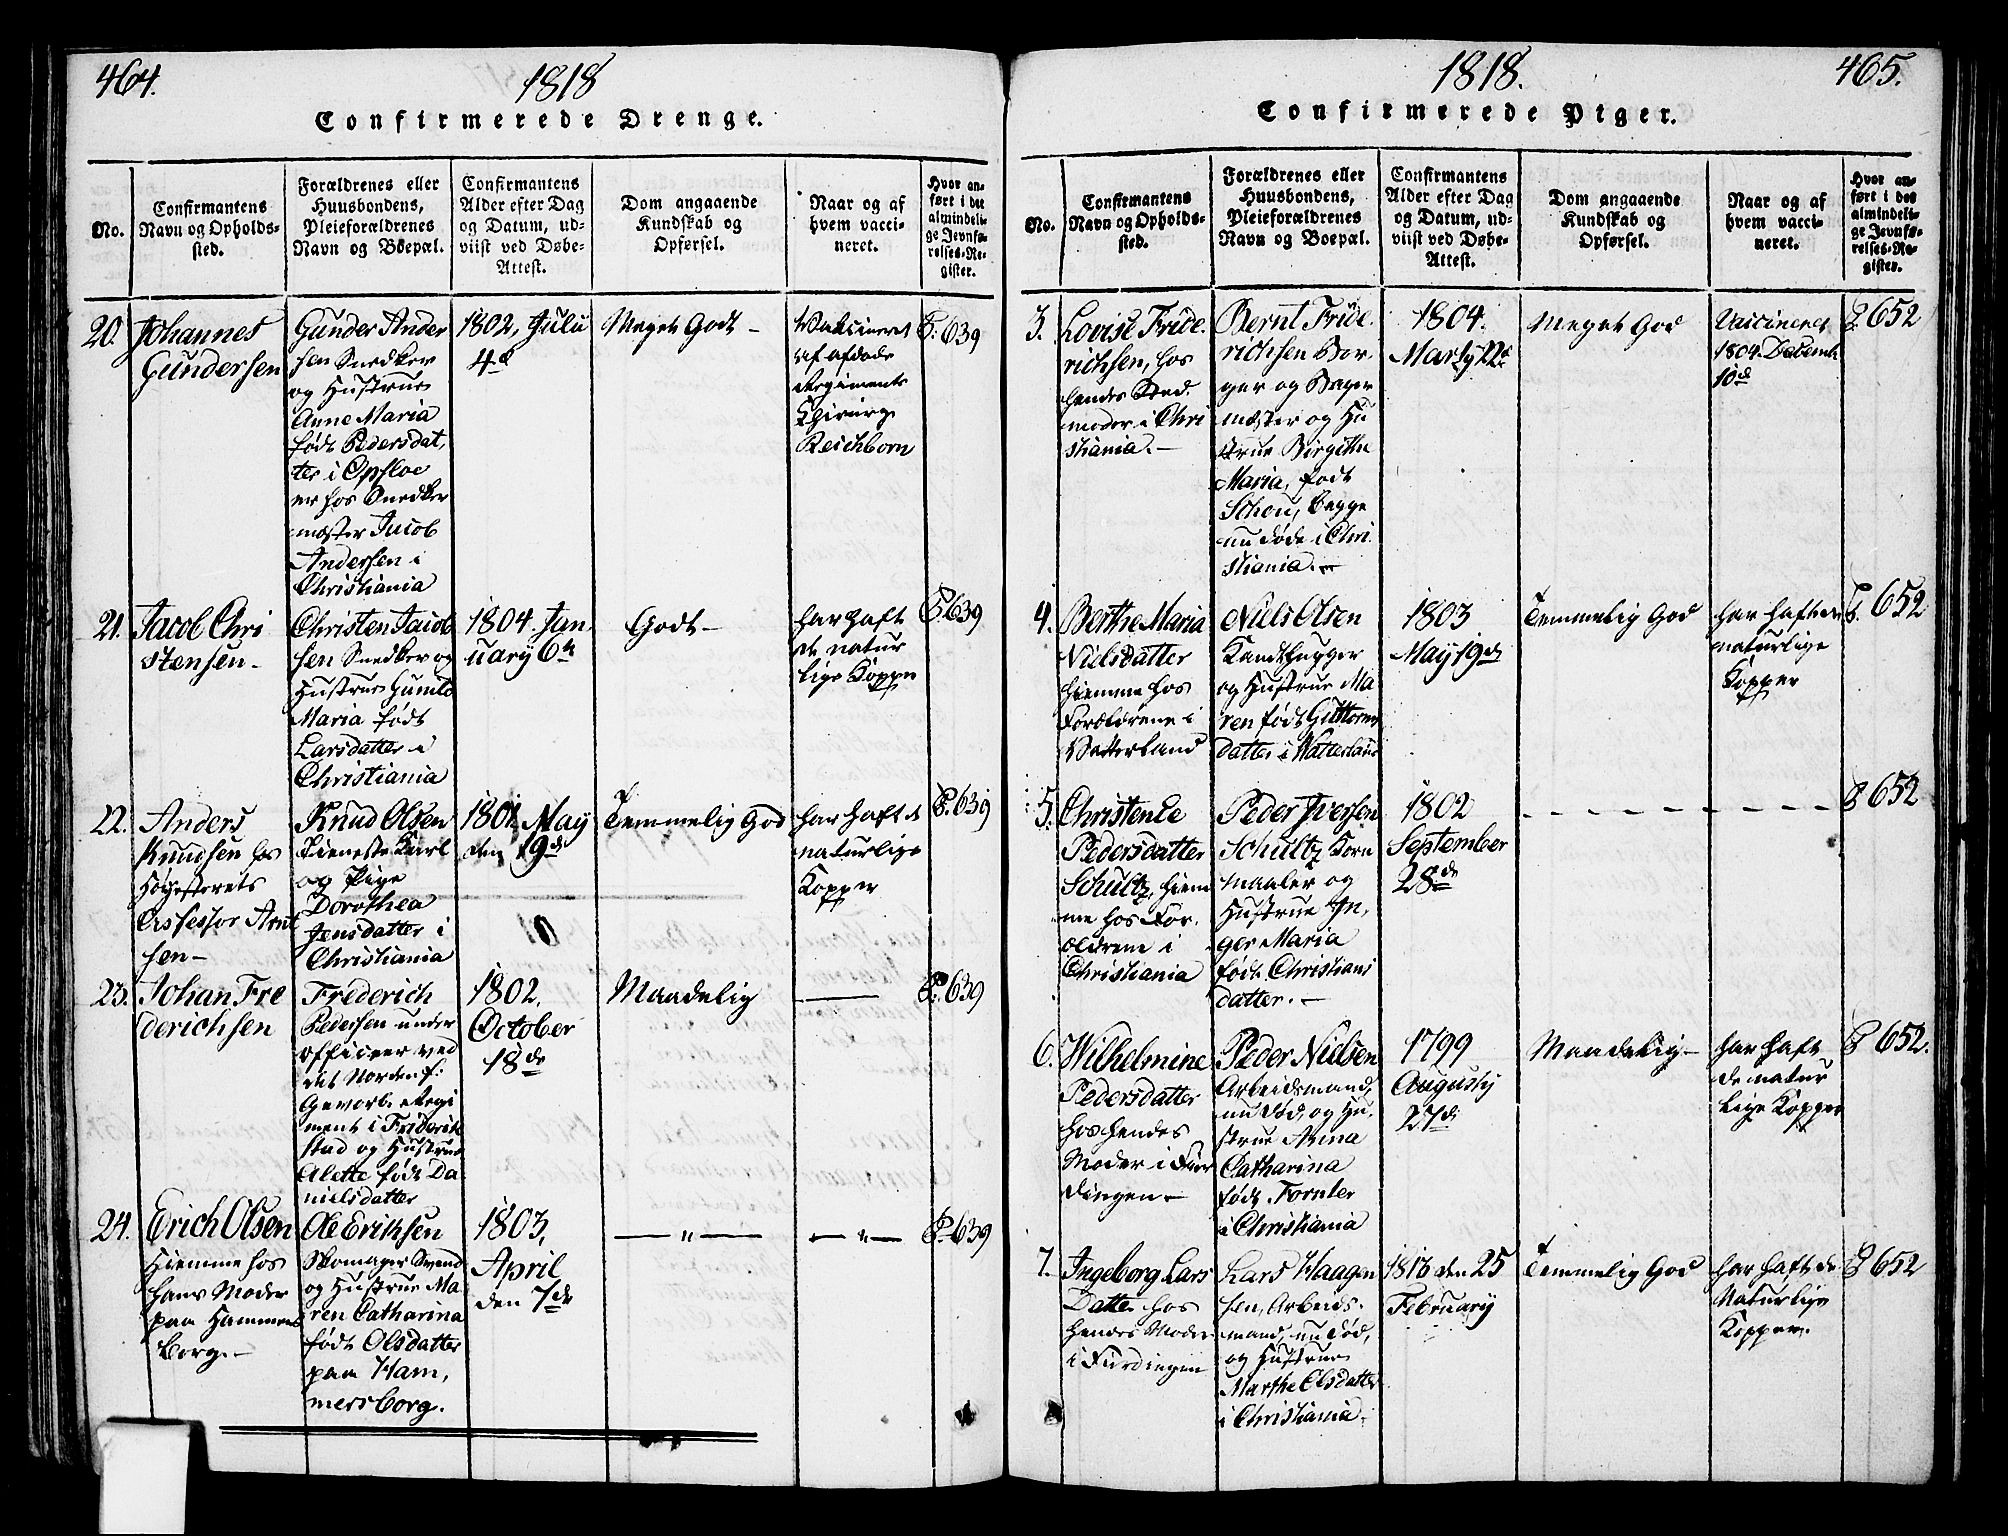 464.
1818
Confirmerede Drenge.
No.
Confirmantens
Navn og Opholds-
sted.
Forældrenes eller
Huusbondens,
Pleieforældrenes
Navn og Boepæl.
Confirmantens
Alder efter Dag
og Datum, ud-
viist ved Døbe-
Attest.
Dom angaaende
Kundskab og
Opførsel.
Naar og af
hvem vacci-
neret.
Hvor an-
ført i det
almindeli-
ge Jevnfø-
relses-Re-
gister.
20.
Johannes
Gundersen
Gunder Ander
sen Snedker
og Hustrue
Anne Maria
født Pedersdat,
ter i Opsloe
er hos Snedker
mæster Jacob
Andersen i
Christiania
1802, July
4d
Meget Godt -
Vaccineret
af afdøde
Regiments
Chirurg
Reichborn
P. 639
21.
Jacob Chri
stensen -
Christen Jacob
sen Snedker og
Hustrue Gunild
Maria født
Larsdatter i
Christiania
1804. Jan
uary 6te
Godt -
har haft
de natur
lige Kopper
P. 639
22.
Anders
Knudsen hos
Høyesterets
Assessor Arnt
sen -
Knud Olsen
Tieneste Karl
og Pige
Dorothea
Jensdatter i
Christiania
1801. May
den 19de
Temmelig God
har haft de
naturlige
Kopper
P. 639
23.
Johan Fre
derichsen
Frederich
Pedersen under
officeer ved
det Nordenf:
Gevorbe Regi
ment i Friderich
stad og Hustrue
Alette født Da
nielsdatter
1802.
October
18de
Maadelig
P. 639
24.
Erich Olsen
Hiemme hos
hans Moder
paa Hammers
borg. -
Ole Eriksen
Skomager Svend
og Hustrue Ma
ren Catharina
født Olsdatter
paa Ham,
mersborg.
1803,
April
den 7de
— " —
— " —
P. 639
465.
1818.
Confirmerede Piger.
No.
Confirmantens
Navn og Opholds-
sted.
Forældrenes eller
Huusbondens,
Pleieforældrenes
Navn og Boepæl.
Confirmantens
Alder efter Dag
og Datum, ud-
viist ved Døbe-
Attest.
Dom angaaende
Kundskab og
Opførsel.
Naar og af
hvem vacci-
neret.
Hvor an-
ført i det
almindeli-
ge Jevnfø-
relses-Re-
gister.
3.
Lovise Fride.
richsen, hos
hendes Sted.
moder i Chri
stiania. -
Bernt Fride.
richsen Bor.
ger og Bager
mæster og Hu
strue Birgithe
Maria, født
Schou, begge
nu døde i Chri
stiania. -
1804.
Marty 22de
Meget God
Vaccineret
1804. Decemb
10d
P. 652
4.
Berthe Maria
Nielsdatter
hiemme hos
Forældrene i
Vatterland
Niels Olsen
og Hustrue Ma
ren født Guttorms
datter i Watterland
1803
May 19de
Temmelig God
har hafte de
naturlige
Kopper
P. 652
5.
Christence
Pedersdatter
Schultz, hiem
me hos For,
ældrene i
Christiania
Peder Iversen
Schultz Korn
maaler og
Hustrue In,
ger Maria
født Christians
datter. -
1802
September
28de
- - - - - - - - - -
P. 652
6.
Wilhelmine
Pedersdatter
hos hendes
Moder i Fier
dingen -
Peder Nielsen
Arbeidsmand,
nu død, og Hu,
strue Anna
Catharina
født
i Christiania
1799
Augusty
27de
Maadelig -
har haft
de natur
lige Kopper
P. 652.
7.
Ingeborg Lars
Datter hos
hendes Moder
i Fierdingen
Lars Haagen
sen, Arbeids.
mand, nu død,
og Hustrue
Marthe Olsdatter
i Christiania.
den 25
February
Temmelig God
har haft de
Naturlige
Kopper.
P. 652